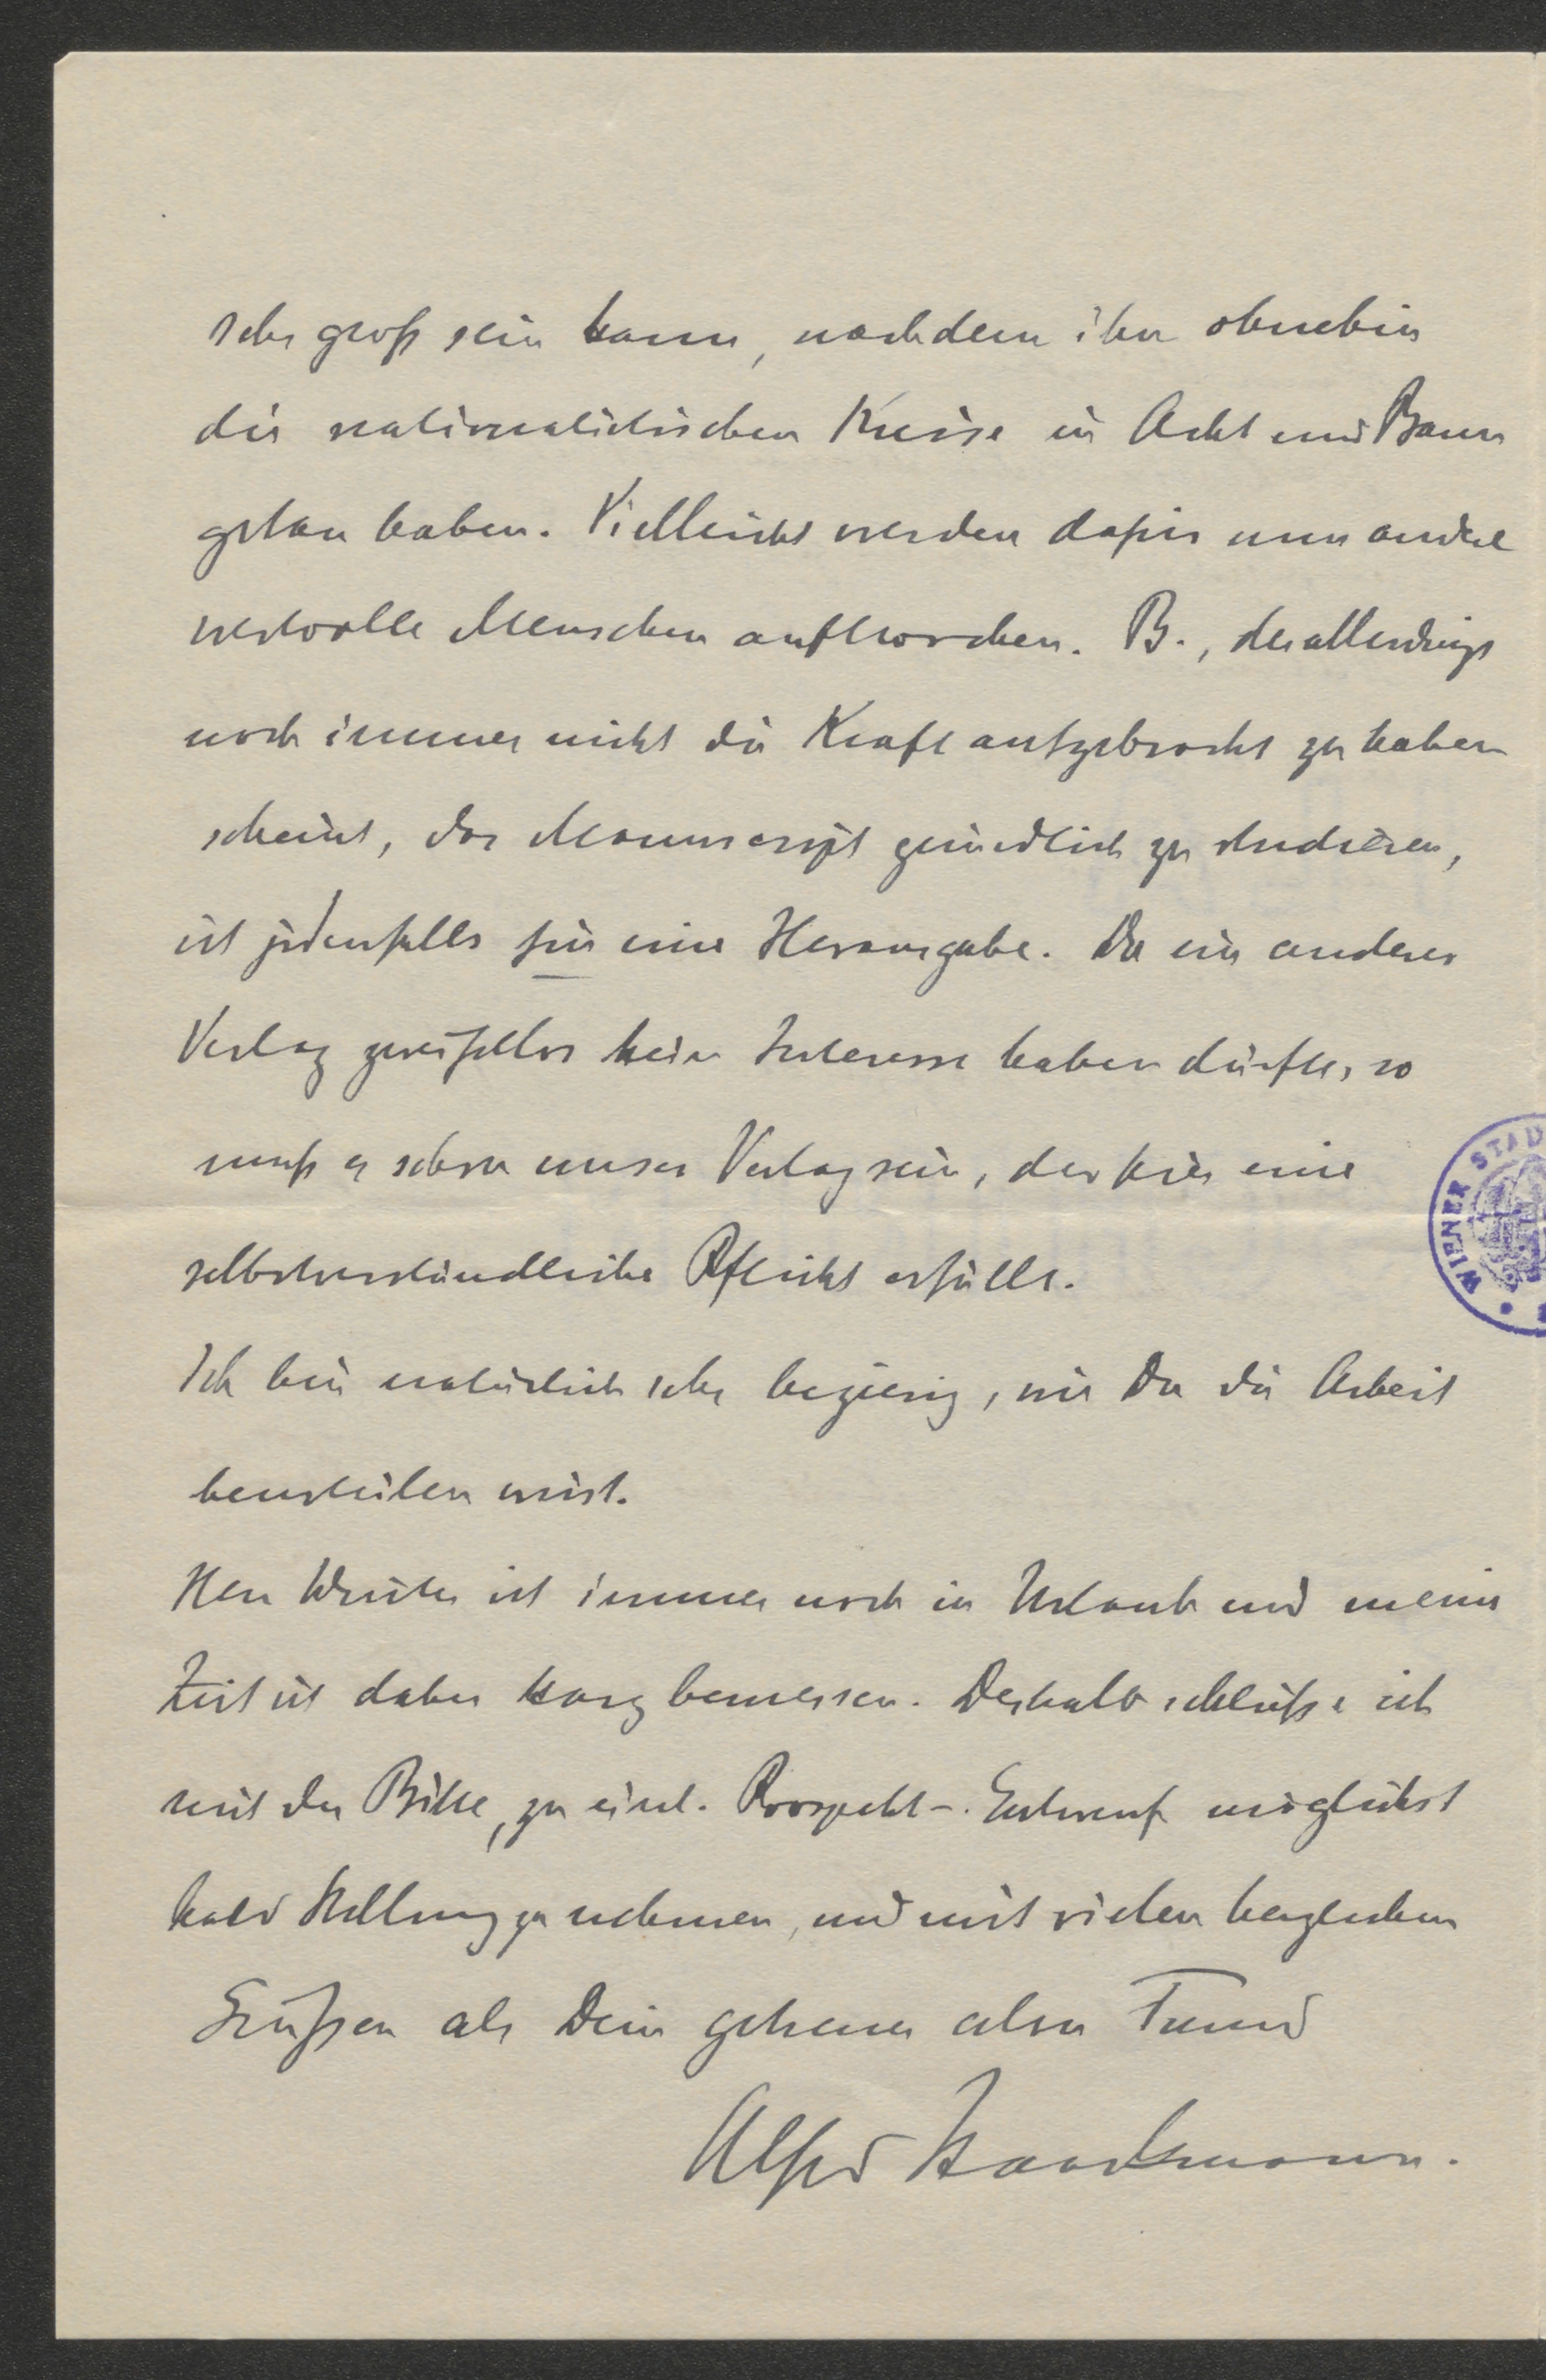 sehr groß sein kann, nachdem ihn ohnehin
die nationalistischen Kreise in Acht und Bann
getan haben. Vielleicht werden dafür nun andere
wertvolle Menschen aufhorchen. B., der allerdings
noch immer nicht die Kraft aufgebracht zu haben
scheint, das Manuscript gründlich zu studieren,
ist jedenfalls für eine Herausgabe. Da ein anderer
Verlag zweifellos kein Interesse haben dürfte, so
muß es schon unser Verlag sein, der hier eine
selbstverständliche Pflicht erfüllt.
Ich bin natürlich sehr begierig, wie Du die Arbeit
beurteilen wirst.
Herr ist immer noch in Urlaub und meine
Zeit ist daher karg bemessen. Deshalb schließe ich
mit der Bitte, zu einl. Prospekt-Entwurf möglichst
bald Stellung zu nehmen, und mit vielen herzlichen
Grüßen als Dein getreuer alter Freund
Alfred
WIENER STAD